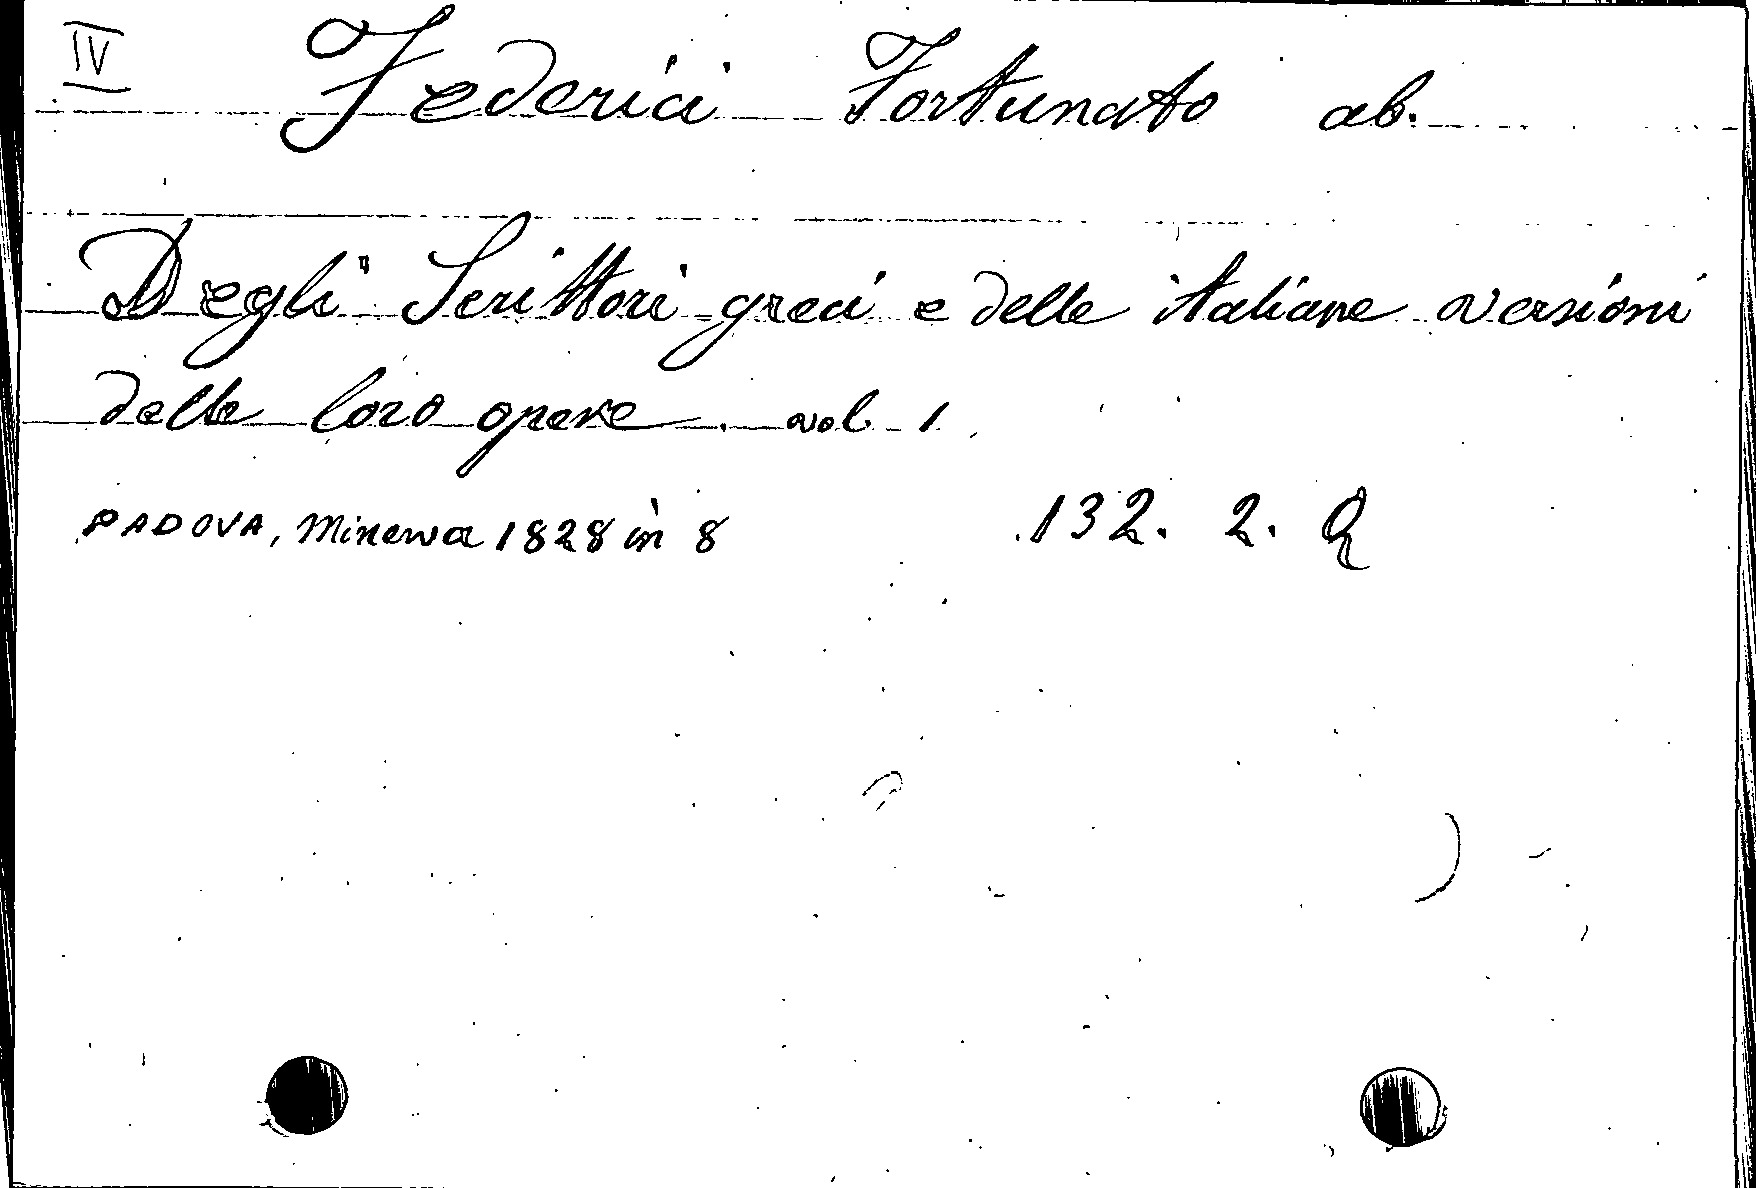 IV
Federici Fortunato ab.
Degli Scrittori greci e delle italiane versioni
delle loro opere. vol 1
PADOVA, Minerva 1828 in 8 132. 2. Q